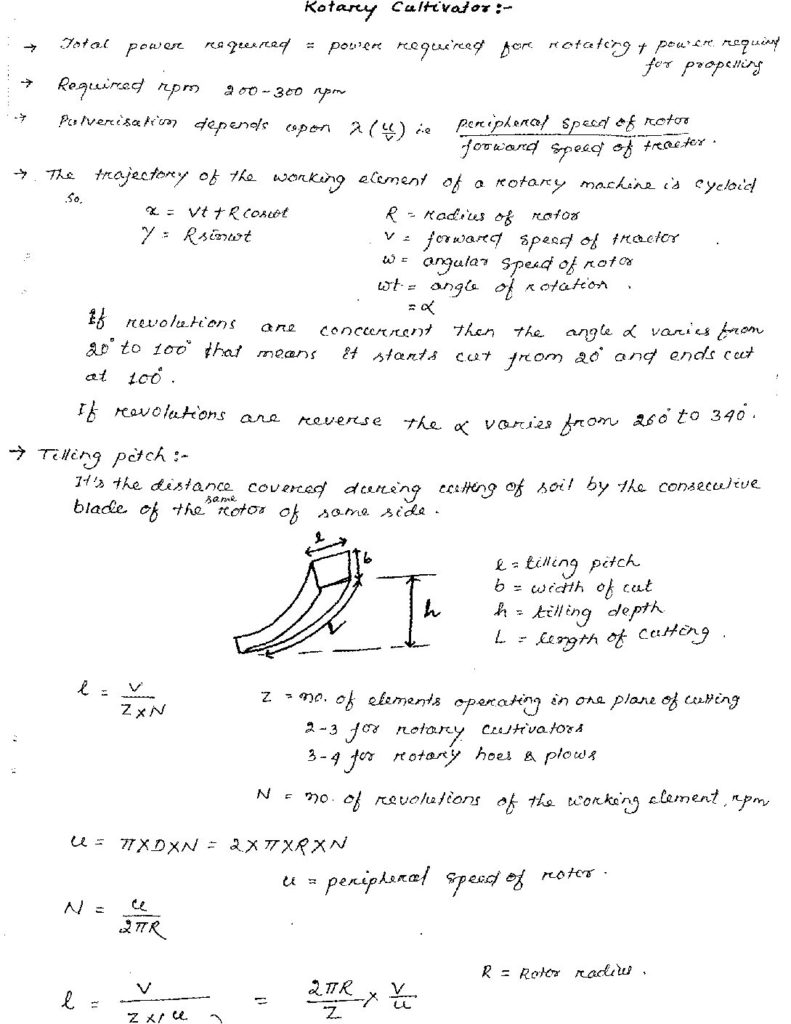 Rotary Cultivator :-
→ Total power required = power required for rotating + power required
for propelling
→ Required rpm 200-300 rpm
→ Pulverisation depends upon λ (u/v) ie peripheral speed of rotor / forward speed of tractor.
→ The trajectory of the working element of a rotary machine is cycloid
So,
x = Vt + R cosωt R = radius of rotor
y = R sinωt V = forward speed of tractor
ω = angular speed of rotor
ωt = angle of rotation.
= α
If revolutions are concurrent then the angle α varies from
20° to 100° that means it starts cut from 20° and ends cut
at 100°.
If revolutions are reverse the α varies from 260° to 340°.
→ Tilling pitch :-
It's the distance covered during cutting of soil by the consecutive
blade of the same rotor of same side.
l
b
h
L
l = tilling pitch
b = width of cut
h = tilling depth
L = length of cutting.
l = V / Z×N Z = no. of elements operating in one plane of cutting
2-3 for rotary cultivators
3-4 for rotary hoes & plows
N = no. of revolutions of the working element, rpm
u = π×D×N = 2×π×R×N
u = peripheral speed of rotor.
N = u / 2πR
R = Rotor radius.
l = V / Z×u = 2πR / Z × V / u